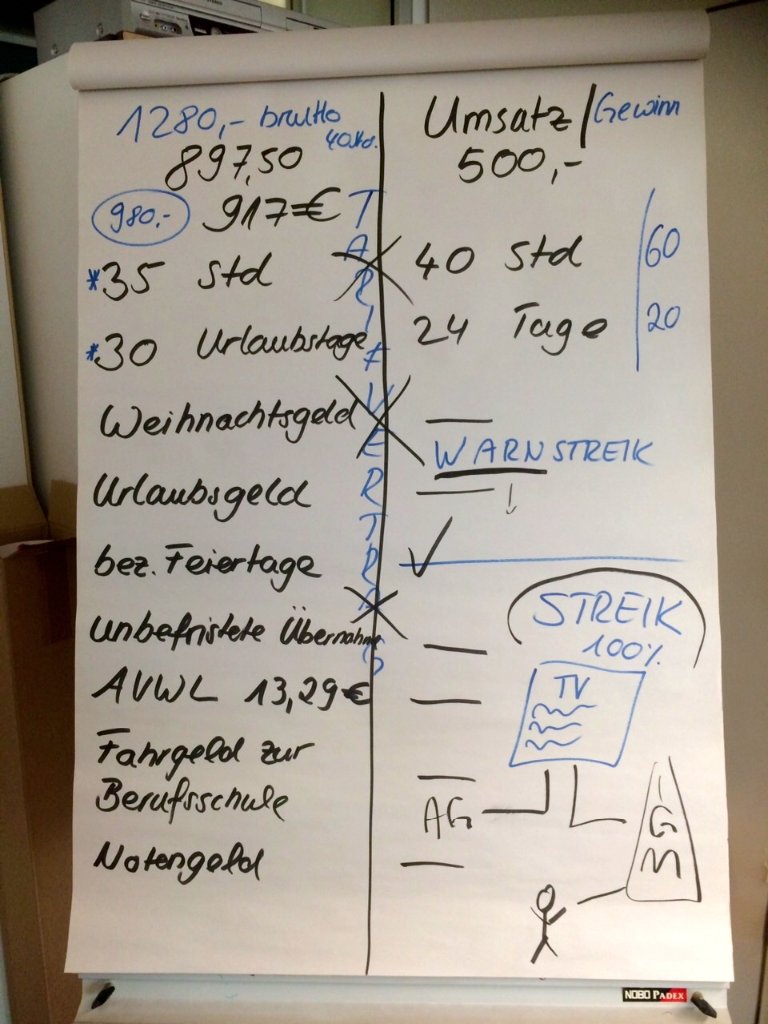 1280,- brutto
40 Std.
897,50
980,- 917 €
*35 Std
*30 Urlaubstage
Weihnachtsgeld
Urlaubsgeld
bez. Feiertage
unbefristete Übernahme
AVWL 13,29 €
Fahrgeld zur
Berufsschule
Notengeld
TARIFVERTRAG
Umsatz / Gewinn
500,-
40 Std 60
24 Tage 20
—
WARNSTREIK
—
!
✓
—
STREIK
100%
—
TV
—
AG
IGM
—
NOBO PADEX